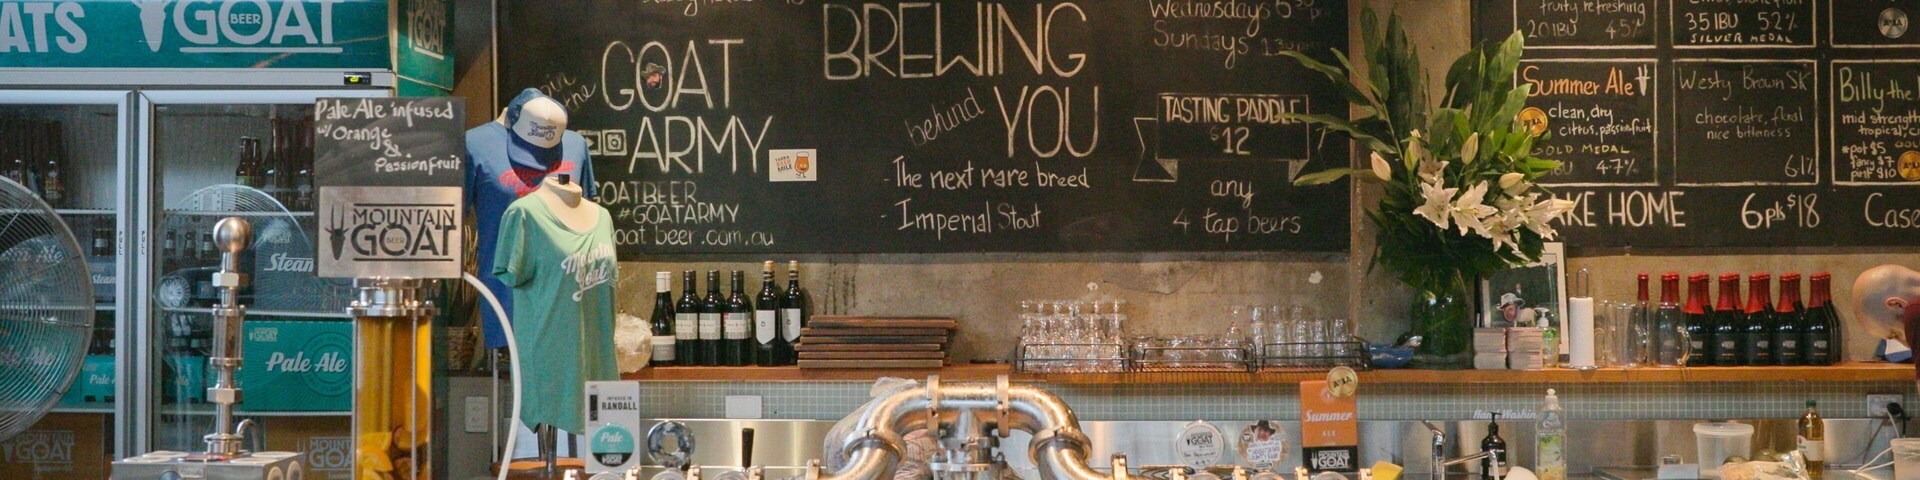 ATS
MOUNTAIN
GOAT
BEER
GOAT
Pale Ale infused
w/ Orange
&
Passionfruit
MOUNTAIN
GOAT
BEER
Steam
Pale Ale
Pale
MOUNTAIN
GOAT
Mountain
Goat
GOAT
ARMY
GOATBEER
#GOATARMY
goatbeer.com.au
BREWING
behind YOU
- The next rare breed
- Imperial Stout
Wednesdays 6:30pm
Sundays
TASTING PADDLE
$12
any
4 tap beers
fruity refreshing
20 IBU 4.5%
35 IBU 5.2%
SILVER MEDAL
Summer Ale
clean, dry
citrus, passionfruit
GOLD MEDAL
IBU 4.7%
Westy Brown SK
chocolate, floral
nice bitterness
6.1%
Billy the
mid strength
tropical, c
*pot $5
fancy $7
pint $10
TAKE HOME 6pk $18 Case
INFUSED IN
RANDALL
Pale
GOAT
Summer
ALE
MOUNTAIN
GOAT
Hand Washing